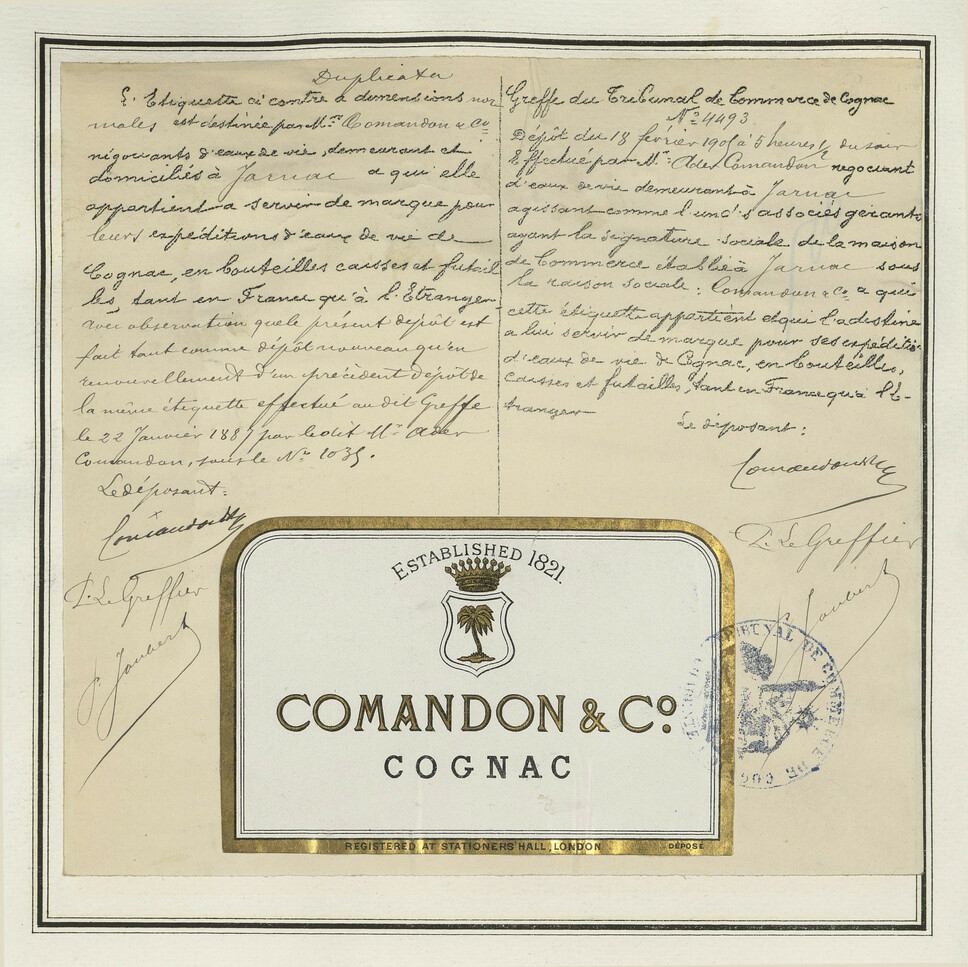 Duplicata
L'Etiquette ci contre a dimensions nor
males est destinée par Mrs Comandon & Co
négociants d'eaux de vie, demeurant et
domiciliés à Jarnac a qui elle
appartient a servir de marque pour
leurs expéditions d'eaux de vie de
Cognac, en bouteilles caisses et futail
les tant en France qu'à l'Etranger
avec observation que le présent dépôt est
fait tant comme dépôt nouveau qu'en
renouvellement d'un précédent dépôt de
la même étiquette effectué au dit Greffe
le 22 Janvier 1887 par le dit Mr Ader
Comandon, sous le No 1035.
Le déposant:
Comandon & Co
P. Le Greffier
P. Joubert
Greffe du Tribunal de Commerce de Cognac
No 4493
Dépôt du 18 février 190 à 5 heures 1/2 du soir
Effectué par Mr Comandon negociant
d'eaux de vie demeurant à Jarnac
agissant comme l'un d's associés gérants
ayant la signature sociale de la maison
de Commerce établie à Jarnac sous
la raison sociale: Comandon & Co a qui
cette étiquette appartient et qui l'a destine
a lui servir de marque pour ses expéditio
d'eaux de vie de Cognac, en bouteilles,
caisses et futailles, tant en France qu'à l'E-
tranger
Le déposant:
Comandon & Co
P. Le Greffier
P. Joubert
ESTABLISHED 1821.
COMANDON & Co
COGNAC
REGISTERED AT STATIONERS' HALL, LONDON
DÉPOSÉ
TRIBUNAL DE COMMERCE DE COG